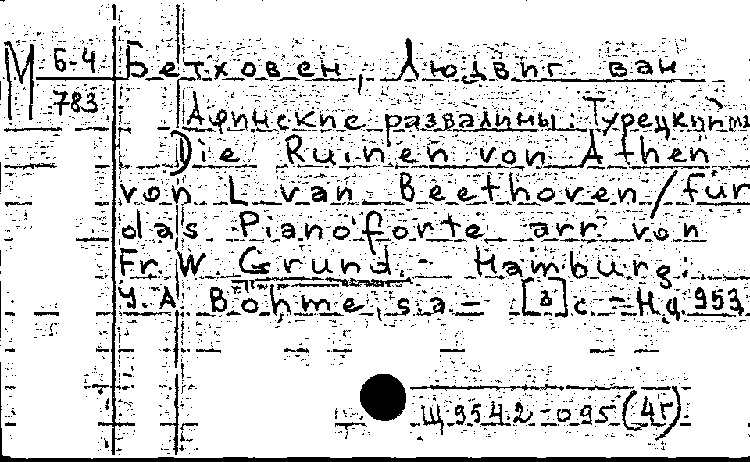 М Б-4 Бетховен, Людвиг ван
783 Афинские развалины. Турецкий
Die Ruinen von Athen
von L van Beethoven / für
das Pianoforte arr von
Fr W Grund. - Hamburg:
J. A. Böhme, s. a. - [3] с. - Н. д. 953
Щ 954.2-095 (4Г)